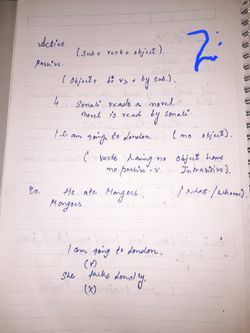 Active
(Sub + verb + object).
Passive.
(Object + be v3 + by sub.)
Sonali reads a novel.
novel is read by Sonali
I am going to London. (no object).
(verbs having no object have
no passive. v. Intransitive).
Ex. He ate Mangoes. (What / Whom)
Mangoes
I am going to London.
(x)
She talks
(x)